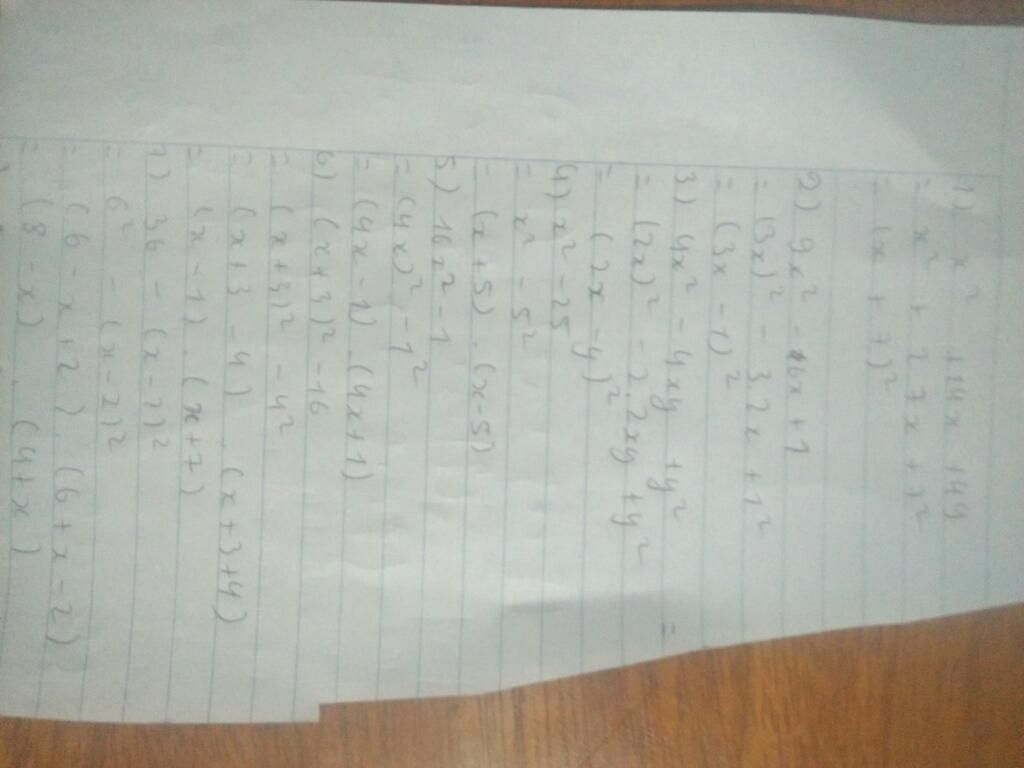 1) x² + 14x + 49
= x² + 2.7x + 7²
= (x + 7)²
2) 9x² - 6x + 1
= (3x)² - 3.2x + 1²
= (3x - 1)²
3) 4x² - 4xy + y² =
= (2x)² - 2.2xy + y²
= (2x - y)²
4) x² - 25
= x² - 5²
= (x + 5) . (x - 5)
5) 16x² - 1
= (4x)² - 1²
= (4x - 1) . (4x + 1)
6) (x + 3)² - 16
= (x + 3)² - 4²
= (x + 3 - 4) . (x + 3 + 4)
= (x - 1) . (x + 7)
7) 36 - (x - 2)²
= 6² - (x - 2)²
= (6 - x + 2) . (6 + x - 2)
= (8 - x) . (4 + x)